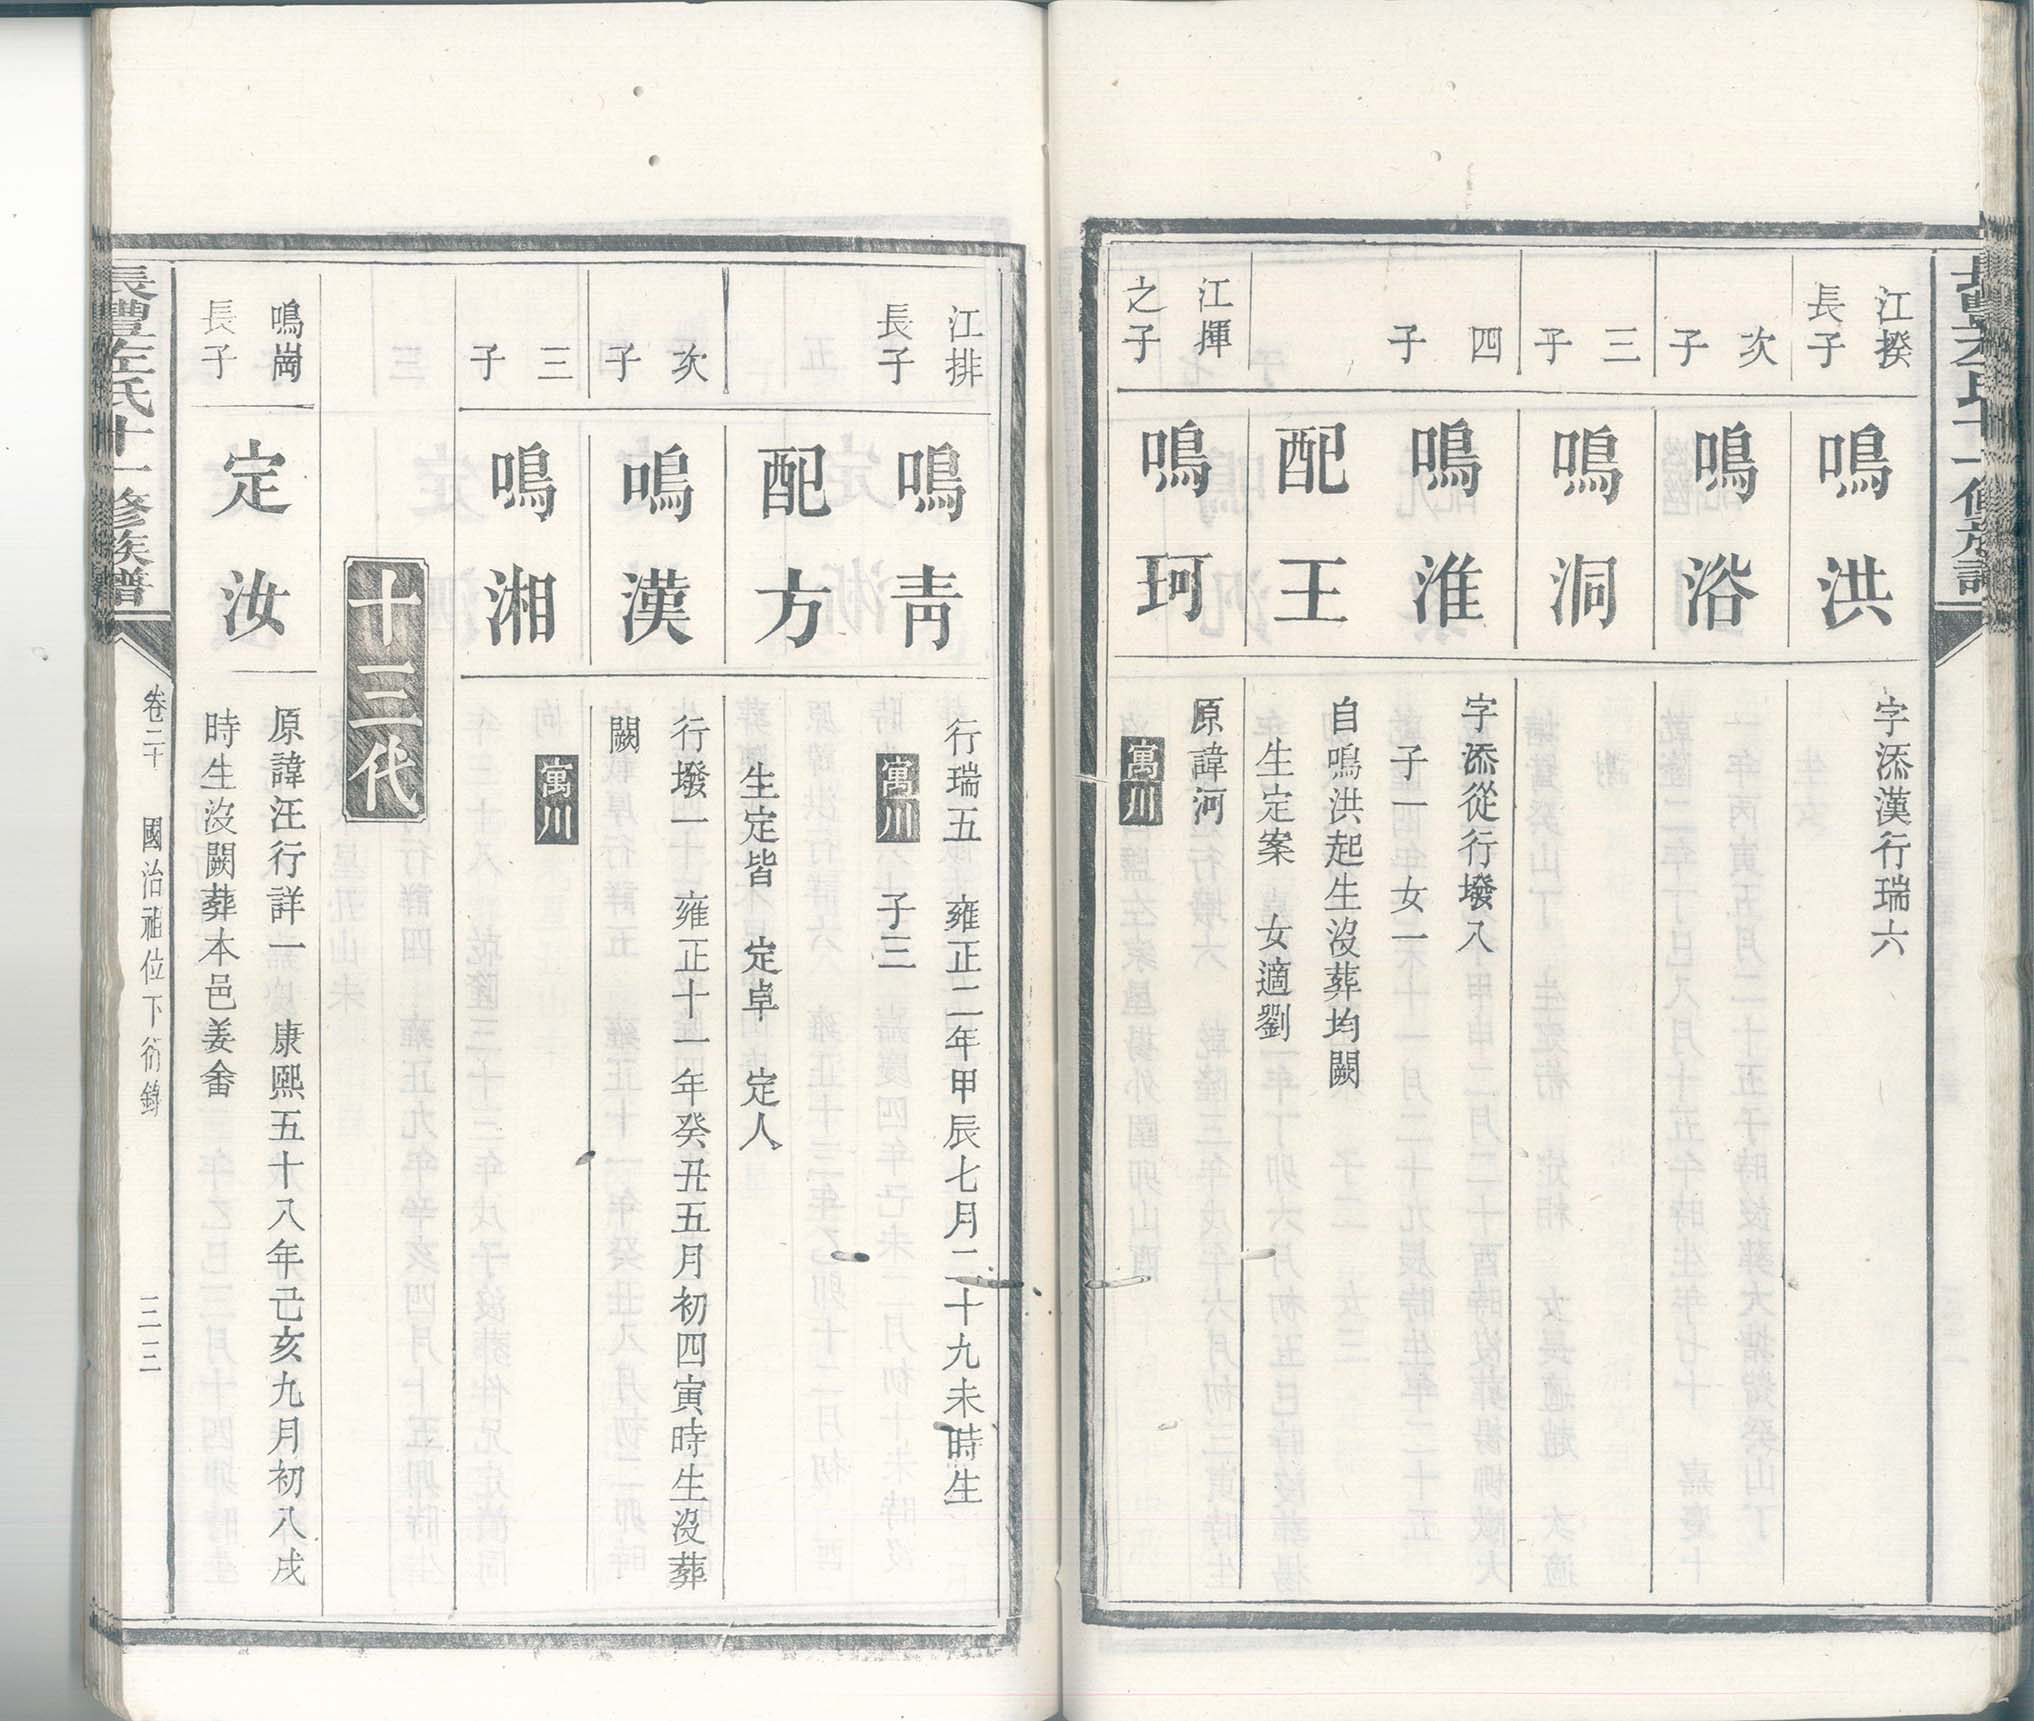 長豊左氏十一修族譜
江揆
長子
鳴洪
字添漢行瑞六
次
子
鳴浴
三
子
鳴洞
四
子
鳴淮
字添從行墢入
子一 女一
配王
自鳴洪起生沒葬均闕
生定案 女適劉
江揮
之子
鳴珂
原諱河
寓川
江排
長子
鳴青
行瑞五 雍正二年甲辰七月二十九未時生
寓川 子三
配方
生定皆 定卓 定人
次
子
鳴漢
行墢一 雍正十一年癸丑五月初四寅時生沒葬
闕
三
子
鳴湘
寓川
十三代
鳴崗
長子
定汝
原諱汪行詳一 康熙五十八年己亥九月初八戌
時生沒闕葬本邑姜畬
長豊左氏十一修族譜
卷二十 國治祖位下衍錄 三三